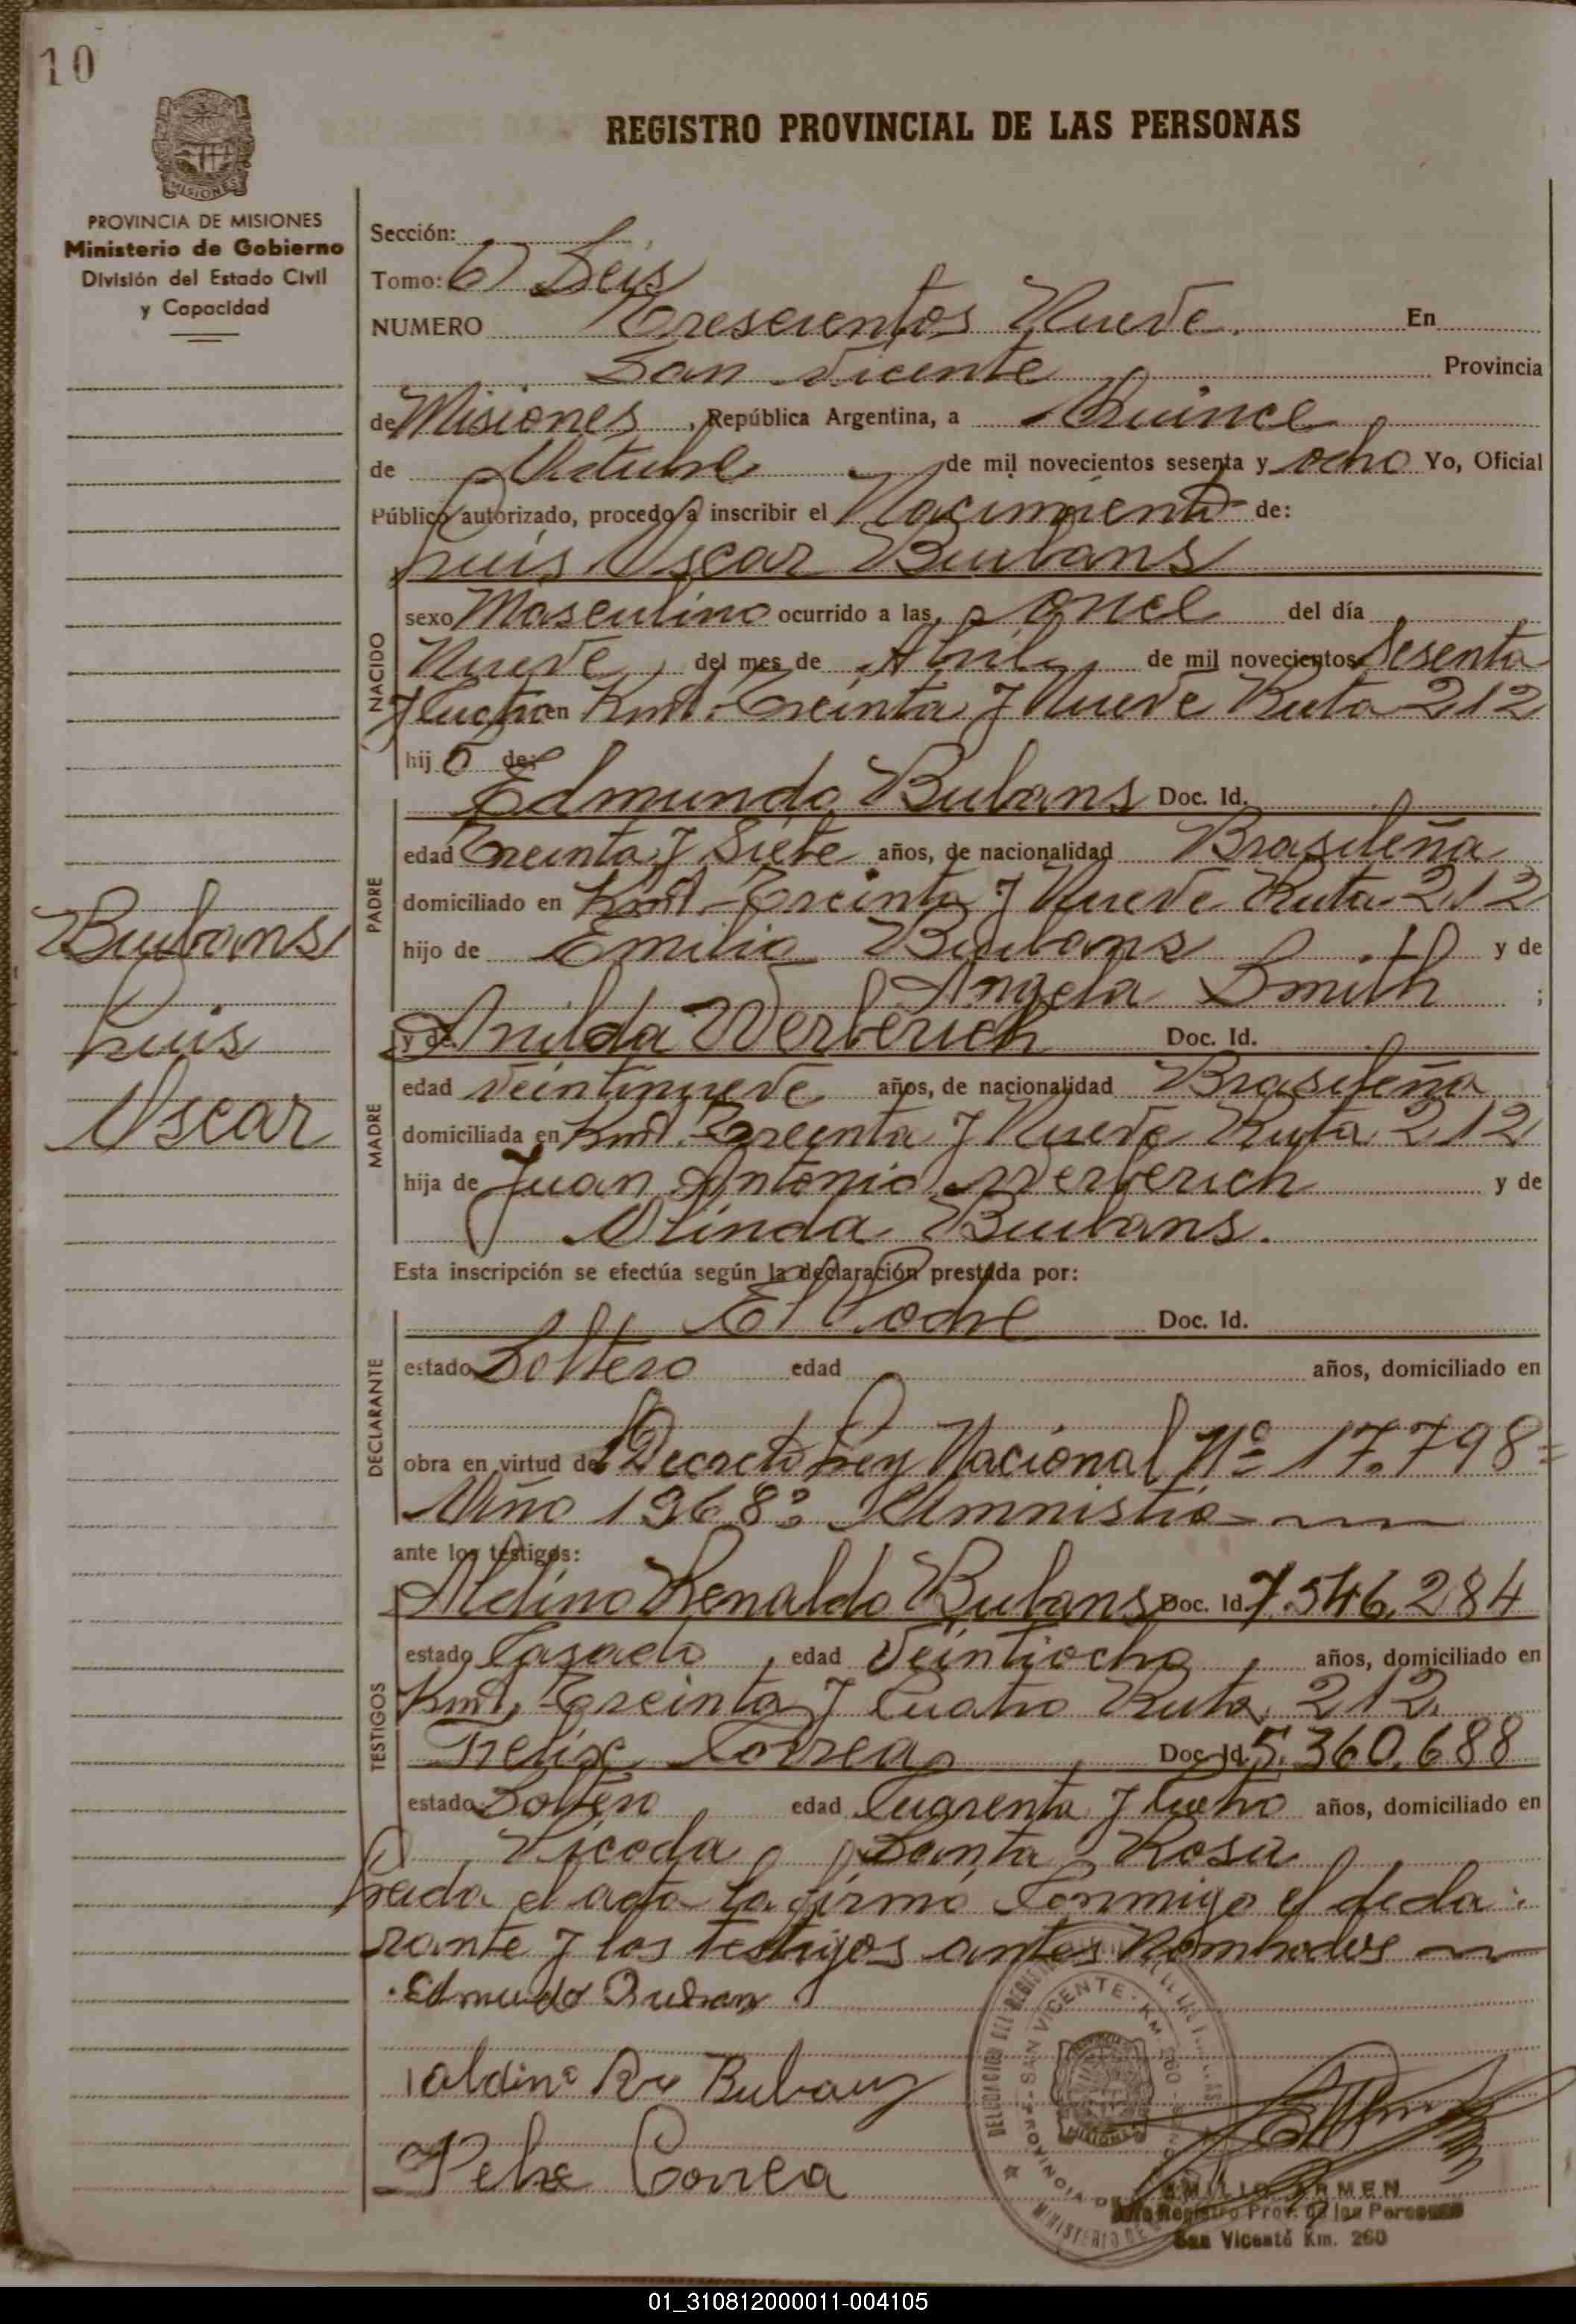 10
REGISTRO PROVINCIAL DE LAS PERSONAS
MISIONES
PROVINCIA DE MISIONES
Ministerio de Gobierno
División del Estado Civil
y Capacidad
Sección:
Tomo: 6) Seis
NUMERO Trescientos Nueve. En
San Vicente Provincia
de Misiones, República Argentina, a Quince
de Octubre de mil novecientos sesenta y ocho Yo, Oficial
Público autorizado, procedo a inscribir el Nacimiento de:
Luis Oscar Buubans
NACIDO
sexo Masculino ocurrido a las once del día
Nueve, del mes de Abril, de mil novecientos Sesenta
y Cuatro en Kmt. Treinta y Nueve Ruta 212
hij o de:
PADRE
Edmundo Bubans Doc. Id.
edad Treinta y Siete años, de nacionalidad Brasileña
domiciliado en Kmt. Treinta y Nueve Ruta 212
hijo de Emilio Buubans y de
Angela Smith ;
MADRE
y de Anilda Werberich Doc. Id.
edad Veintinueve años, de nacionalidad Brasileña
domiciliada en Kmt. Treinta y Nueve Ruta 212
hija de Juan Antonio Werberich y de
Olinda Buubans.
Buubans
Luis
Oscar
Esta inscripción se efectúa según la declaración prestada por:
DECLARANTE
El Padre Doc. Id.
estado Soltero edad años, domiciliado en
obra en virtud de Decreto Ley Nacional Nº 17.798=
Año 1968: Amnistia
ante los testigos:
TESTIGOS
Aldino Renaldo Bubans Doc. Id. 7.546.284
estado Casado, edad Veintiocho, años, domiciliado en
Kmt. Treinta y Cuatro Ruta 212.
Felix Correa, Doc. Id. 5.360.688
estado Soltero edad Cuarenta y Cuatro años, domiciliado en
Picada Santa Rosa
Leida el acta la firmó Conmigo el decla:
rante y los testigos antes Nombrados
Edmundo Buban
aldino Re Bubans
Felix Correa
SAN VICENTE - KM. 260
MISIONES
EMILIO ARMEN
Registro Prov. de las Personas
San Vicente Km. 260
01_310812000011-004105